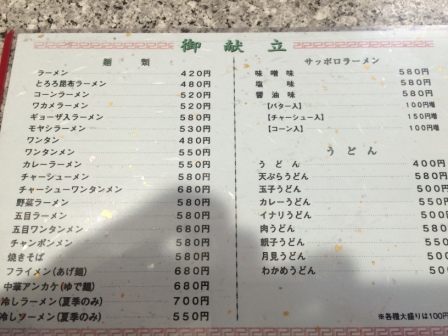 御献立
麺類
ラーメン 420円
とろろ昆布ラーメン 480円
コーンラーメン 520円
ワカメラーメン 520円
ギョーザ入ラーメン 580円
モヤシラーメン 530円
ワンタン 480円
ワンタンメン 550円
カレーラーメン 550円
チャーシューメン 580円
チャーシューワンタンメン 680円
野菜ラーメン 580円
五目ラーメン 580円
五目ワンタンメン 680円
チャンポンメン 580円
焼きそば 580円
フライメン(あげ麺) 680円
中華アンカケ(ゆで麺) 680円
冷しラーメン(夏季のみ) 700円
冷しソーメン(夏季のみ) 550円
サッポロラーメン
味噌味 580円
塩味 580円
醤油味 580円
【バター入】 100円増
【チャーシュー入】 150円増
【コーン入】 100円増
うどん
うどん 400円
天ぷらうどん 580円
玉子うどん 500
カレーうどん 550
イナリうどん 500
肉うどん 580
餅子うどん 550
月見うどん 500
わかめうどん 500
※各種大盛りは100円